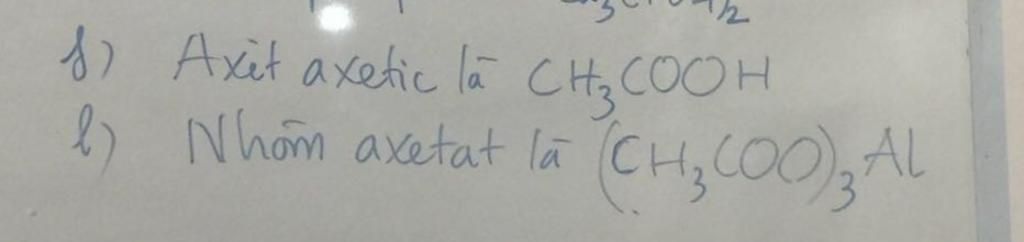 s) Axit axetic là CH₃COOH
l) Nhôm axetat là (CH₃COO)₃Al